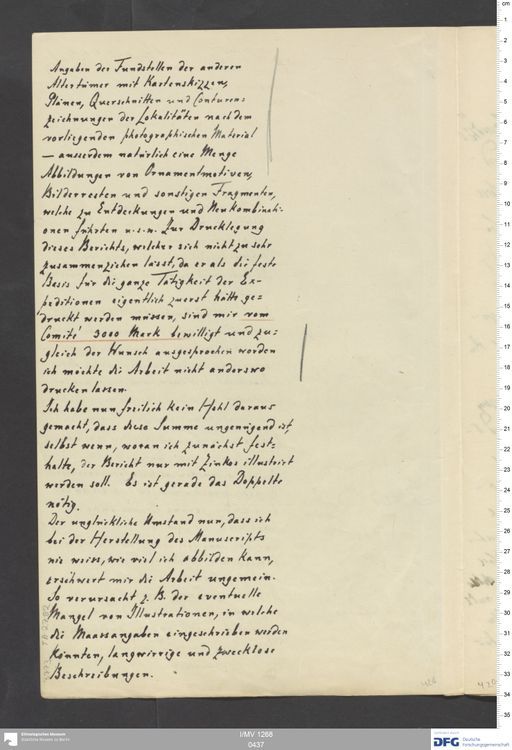 Angaben der Fundstellen der anderen
Altertümer mit Kartenskizzen,
Plänen, Querschnitten und Conturen=
zeichnungen der Lokalitäten nach dem
vorliegenden photographischen Material
— ausserdem natürlich eine Menge
Abbildungen von Ornamentmotiven,
Bilderresten und sonstigen Fragmenten,
welche zu Entdeckungen und Neukombinati-
onen führten u.s.w. Zur Drucklegung
dieses Berichts, welcher sich nicht zu sehr
zusammenziehen lässt, da er als die feste
Basis für die ganze Tätigkeit der Ex-
peditionen eigentlich zuerst hätte ge=
druckt werden müssen, sind mir vom
Comité 3000 Mark bewilligt und zu=
gleich der Wunsch ausgesprochen worden
ich möchte die Arbeit nicht anderswo
drucken lassen.
Ich habe nun freilich kein Hehl daraus
gemacht, dass diese Summe ungenügend ist,
selbst wenn, woran ich zunächst fest-
halte, der Bericht nur mit Zinkos illustrirt
werden soll. Es ist gerade das Doppelte
nötig.
Der unglückliche Umstand nun, dass ich
bei der Herstellung des Manuscripts
nie weiss, wie viel ich abbilden kann,
erschwert mir die Arbeit ungemein.
So verursacht z. B. der eventuelle
Mangel von Illustrationen, in welche
die Maassangaben eingeschrieben werden
könnten, langwierige und zwecklose
Beschreibungen.
Ethnologisches Museum
Staatliche Museen zu Berlin
I/MV 1266
0437
DFG Deutsche
Forschungsgemeinschaft